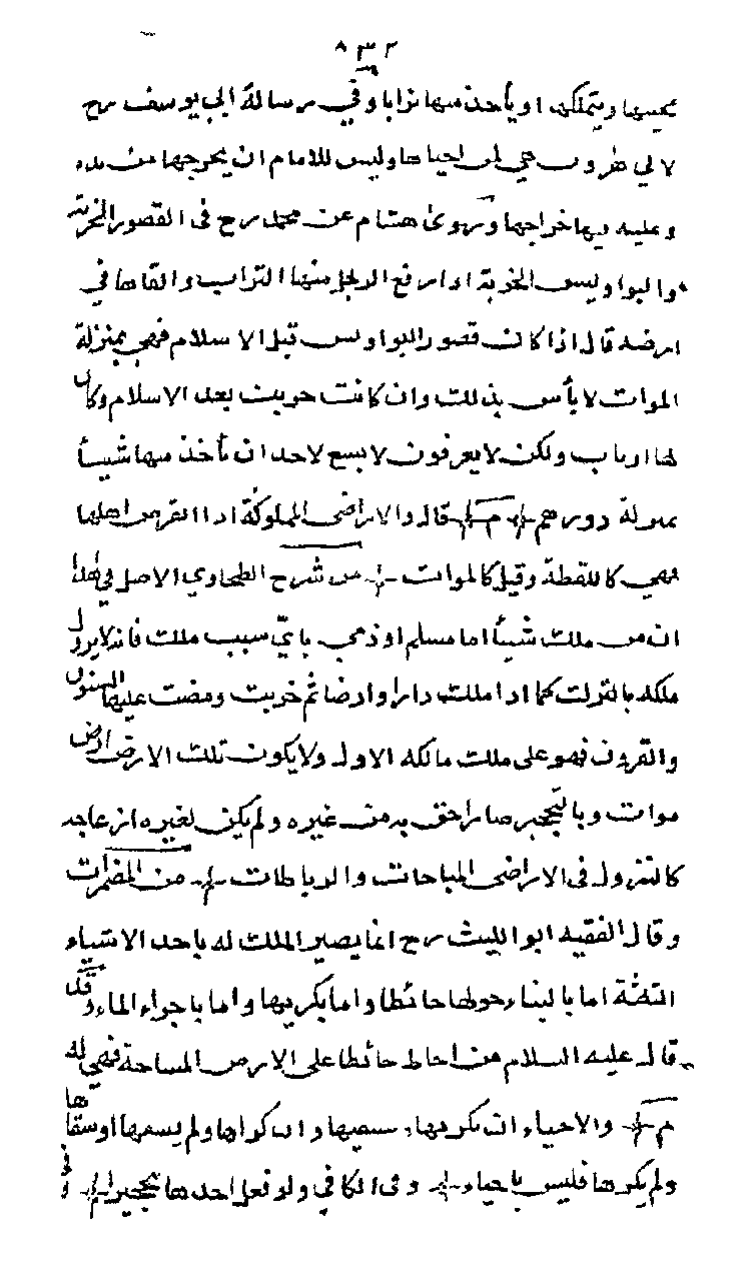 ٨٣٢
يحييها ويتملكها او يأخذ منها ترابا وفي رسالة ابي يوسف رح
لاي ظروب هي لمن احياها وليس للامام ان يخرجها من يده
وعليه فيها خراجها وروى هشام عن محمد رح فى القصور الخربة
والبواويس الخربة اذا رفع الرجل منها التراب والقاها في
ارضه قال اذا كانت قصور البواويس قبل الاسلام فهي بمنزلة
الموات لا بأس بذلك وان كانت خربت بعد الاسلام وكان
لها ارباب ولكن لا يعرفون لا يسع لاحد ان يأخذ منها شيئا
بمنزلة دورهم م قال والاراضى المملوكة اذا انقرض اهلها
فهي كاللقطة وقيل كالموات من شرح الطحاوي الاصل في هذا
ان من ملك شيئا اما مسلم او ذمي بايّ سبب ملك فانه لا يزول
ملكه بالترك كما اذا ملك دارا وارضا ثم خربت ومضت عليها السنون
والقرون فهو على ملك مالكه الاول ولا يكون تلك الارض ارض
موات وبالتحجير صار احق به من غيره ولم يكن لغيره ازعاجه
كالنزول فى الاراضى المباحات والرباطات من المضمرات
وقال الفقيه ابو الليث رح انما يصير الملك له باحد الاشياء
الثلثة اما بالبناء حولها حائطا واما بكريها واما باجراء الماء وقد
قال عليه السلام من احاط حائطا على الارض المباحة فهي له
م والاحياء ان يكريها ويسقيها وان كراها ولم يسقها او سقاها
ولم يكرها فليس باحياء وفى الكافي ولو فعل احدها تحجير